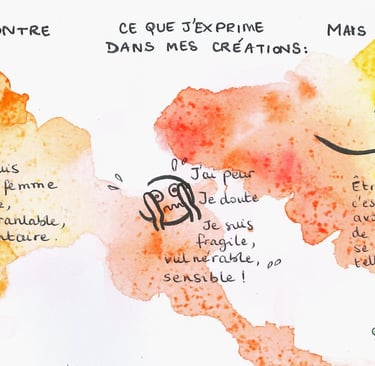 ONTRE
uis
femme
e,
rantable,
ntaire.
CE QUE J'EXPRIME
DANS MES CRÉATIONS:
J'ai peur
Je doute
Je suis
fragile,
vulnérable,
sensible !
MAIS
Êtr
c'es
avo
de
sé
tell